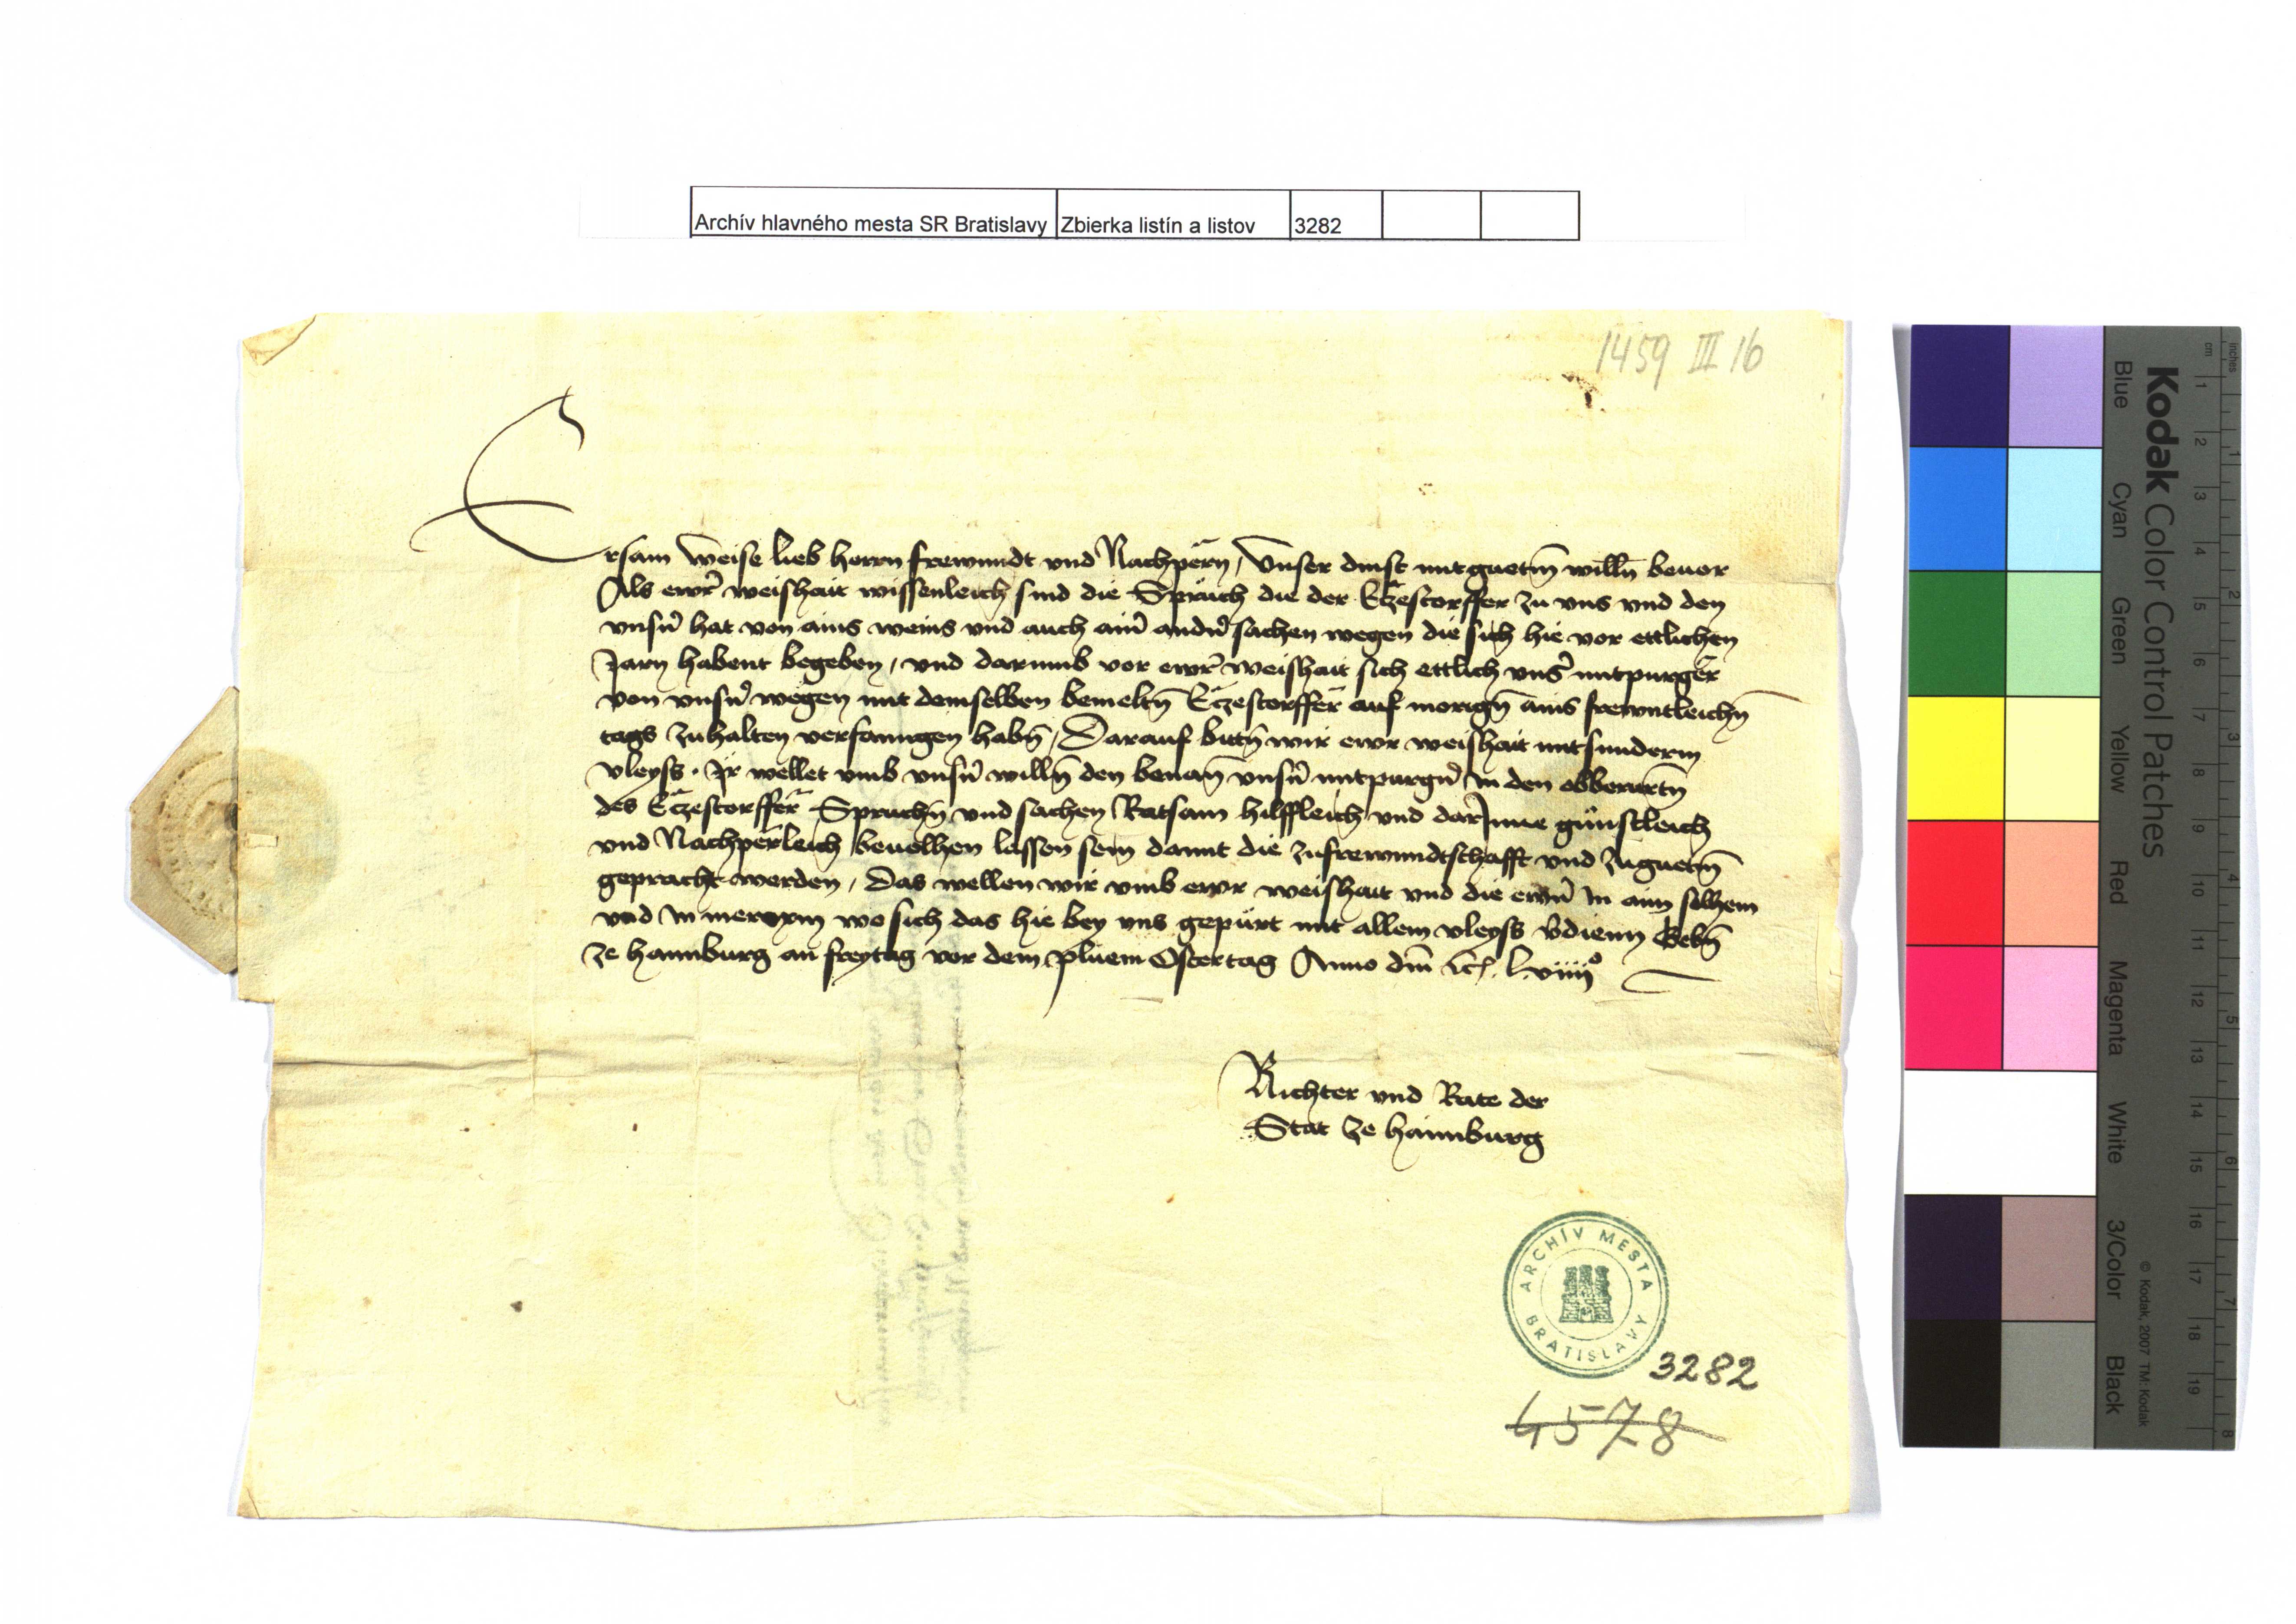 Archív hlavného mesta SR Bratislavy Zbierka listín a listov 3282
1459 III 16
Ersam weise lieb herrn frewnndt vnd Nachpern, Vnser dinst mit guetm̄ willn̄ beuor
Als ewr weishait wissenleich sind die Sprüch die der Eczestorffer zu vns vnd den
vnsern hat von ains weins vnd auch ainr andr sachen wegen die sich hie vor ettlichen
Jarn habent begeben, vnd darumb vor ewr weishait sich ettlich vnsr mitpurger
von vnsern wegen mit demselben bemeltn̄ Eczestorffer auf morign̄ ains frewntleichn̄
tags zuhalten verfanngen habn̄, Darauf bittn̄ wir ewr weishait mit sunderm
vleyss. Ir wellet vmb vnsern willn̄ den benan̄ vnsern mitpurgern in den obberürtn̄
des Eczestorffer Spruchn̄ vnd sachen Ratsam hilffleich vnd darInne günstleich
vnd Nachperleich beuolhen lassen sein damit die zufrewnndtschafft vnd zuguetm̄
gepracht werden, Das wellen wir vmb ewr weishait vnd die ewrn in aim solhem
vnd in merерm wo sich das hie bey vns gepürt mit allem vleyss vdienn Gebn̄
ze haimburg an freytag vor dem pluem Ostertag Anno dm̄ lviiii°
Richter vnd Rate der
Stat ze haimburg
ARCHÍV MESTA BRATISLAVY
3282
4578
Kodak Color Control Patches
Blue Cyan Green Yellow Red Magenta White 3/Color Black
© Kodak, 2007 TM: Kodak
inches 1 2 3 4 5 6 7 8
cm 1 2 3 4 5 6 7 8 9 10 11 12 13 14 15 16 17 18 19